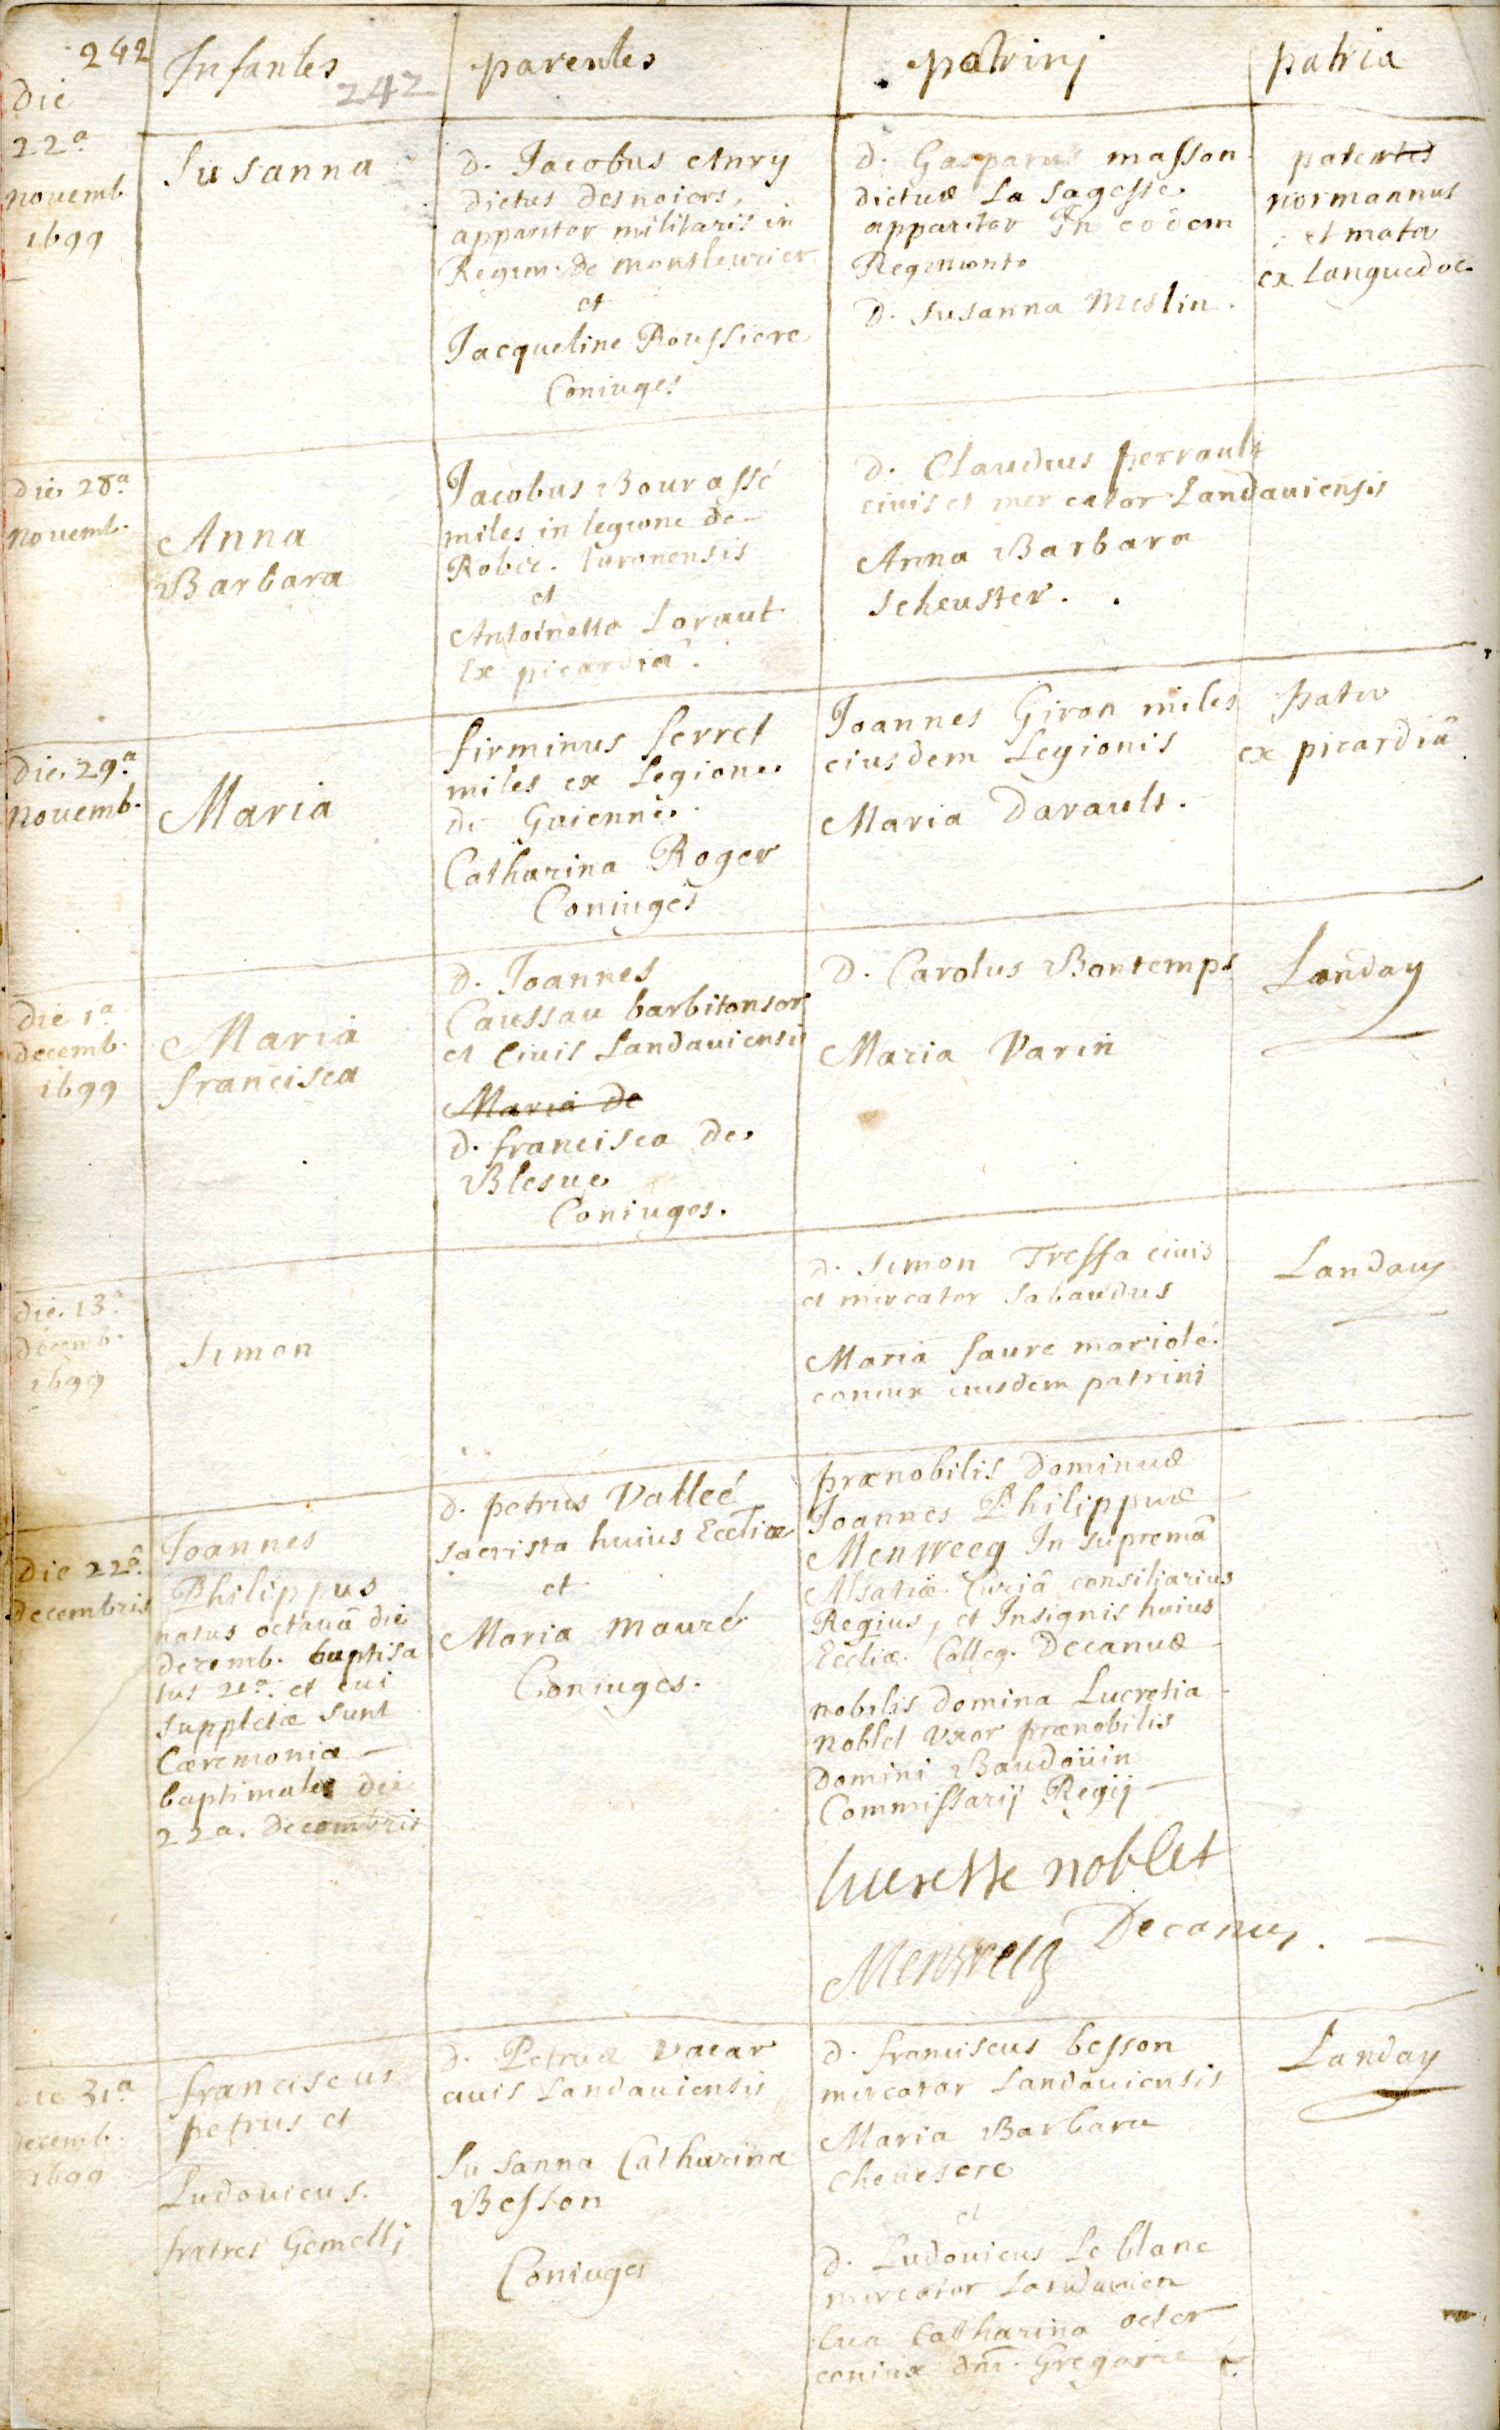 242
die
Infantes
242
parentes
patrinj
patria
22a.
nouemb
1699
Susanna
d. Jacobus Anry
dictus desnoiers,
apparitor militaris in
Regim: de
et
Jacqueline Roussiere
Coniuges
d. Gasparus masson
dictus La Sagesse
apparitor In eodem
Regimento
d. Susanna Meslin.
normannus
et mater
ex Languedoc
die 28a.
Nouemb.
Anna
Barbara
Jacobus Bourassé
miles in legione de
Robec. turonensis
et
Antoinette Loraut
Ex picardiâ.
d. Claudius perrault
ciuis et mercator Landauiensis
Anna Barbara
Scheuster.
die 29a.
nouemb.
Maria
firminus ferret
miles ex Legione
de Guienne
Catharina Roger
Coniuges
Joannes Giron miles
eiusdem Legionis
Maria Darault.
pater
ex picardiâ
die 1a
decemb.
1699
Maria
francisca
d. Joannes
Caussau barbitonsor
et Ciuis Landauiensis
Maria de
d. francisca de
Blesue
Coniuges.
D. Carolus Bontemps
Maria Varin
Landau
die 13a
decemb.
1699
Simon
d. Simon Tressa ciuis
et mercator Sabaudus
Maria faure mariolé
coniux eiusdem patrini
Landau
die 22a.
decembris
Joannes
Philippus
natus octauâ die
decemb. baptisa
tus 21a. et cui
suppletæ sunt
Cæremonia
baptimales die
22a. decembris
d. petrus Valleé
sacrista huius Eccliæ
et
Maria Mauré
Coniuges.
prænobilis dominus
Joannes Philippus
Menweeg In supremâ
Alsatiæ Curiâ consiliarius
Regius, et Insignis huius
Eccliæ. Colleg. Decanus
nobilis domina Lucretia
noblet Uxor prænobilis
domini Baudoüin
Commissarij Regij
lucresse noblet
Menweeg Decanus.
die 31a
decemb.
1699
franciscus
petrus et
Ludouicus.
fratres Gemelli
d. Petrus Vacar
ciuis Landauiensis
Susanna Catharina
Besson
Coniuges
d. franciscus besson
mercator Landauiensis
Maria Barbara
chenesere
et
d. Ludouicus Le blanc
mercator Landauien
Eua Catharina oeter
coniux dni. Gregoire
Landau